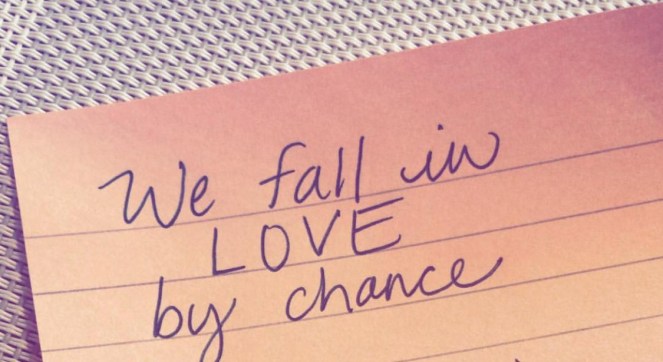 We fall in
LOVE
by chance